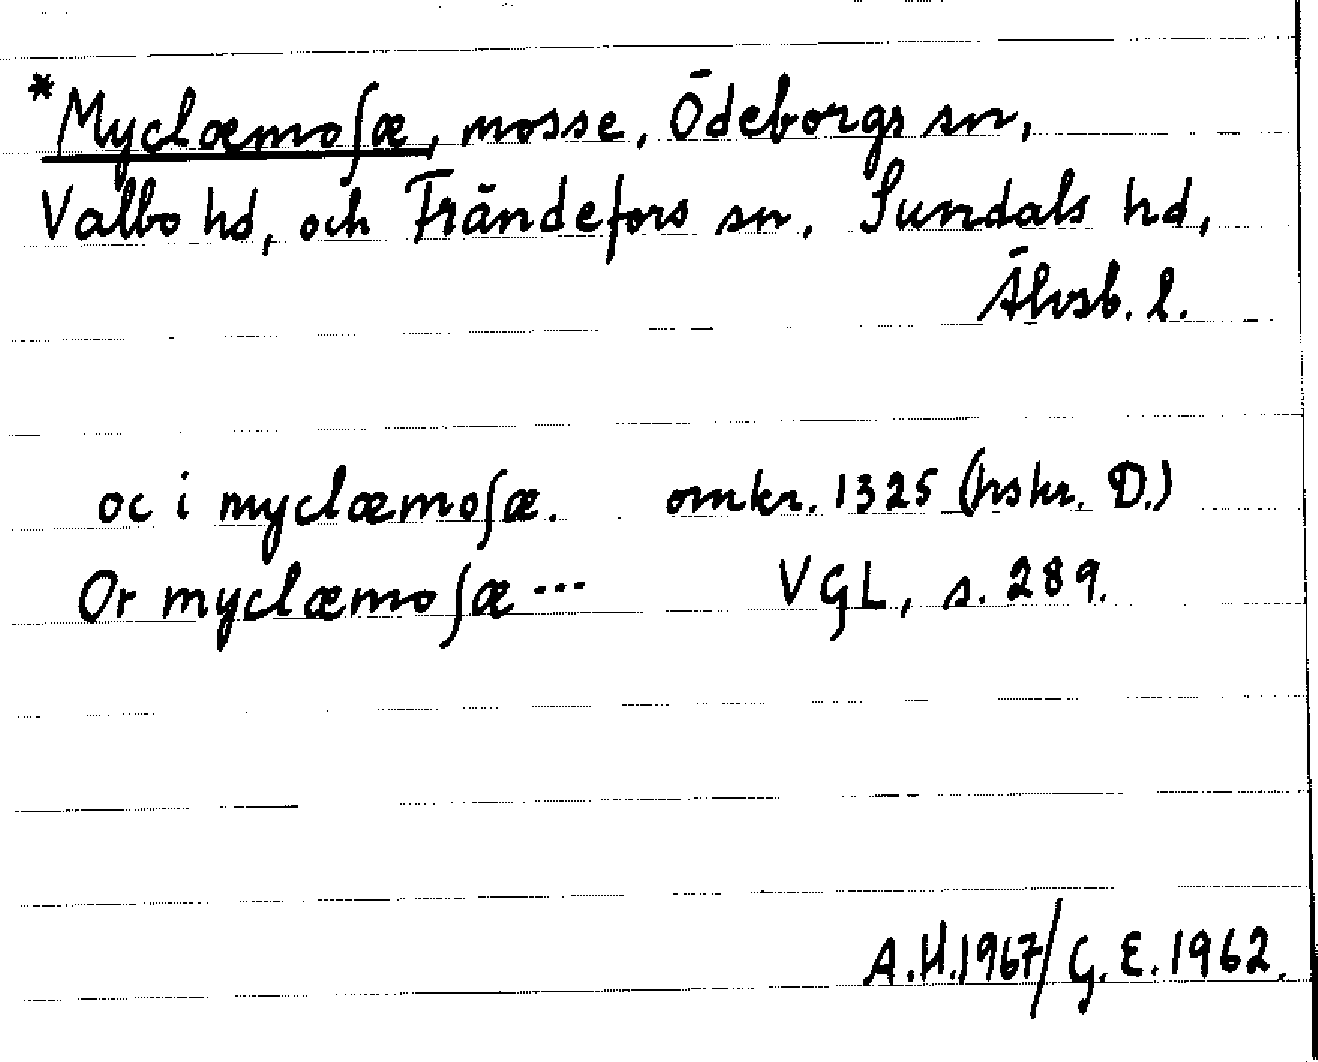 *Myclæmoſæ, mosse, Ödeborgs sn,
Valbo hd, och Frändefors sn, Sundals hd,
Älvsb. l.
oc i myclæmoſæ. omkr. 1325 (hskr. D.)
Or myclæmoſæ ... VGL, s. 289.
A.H.1967/G.E.1962.